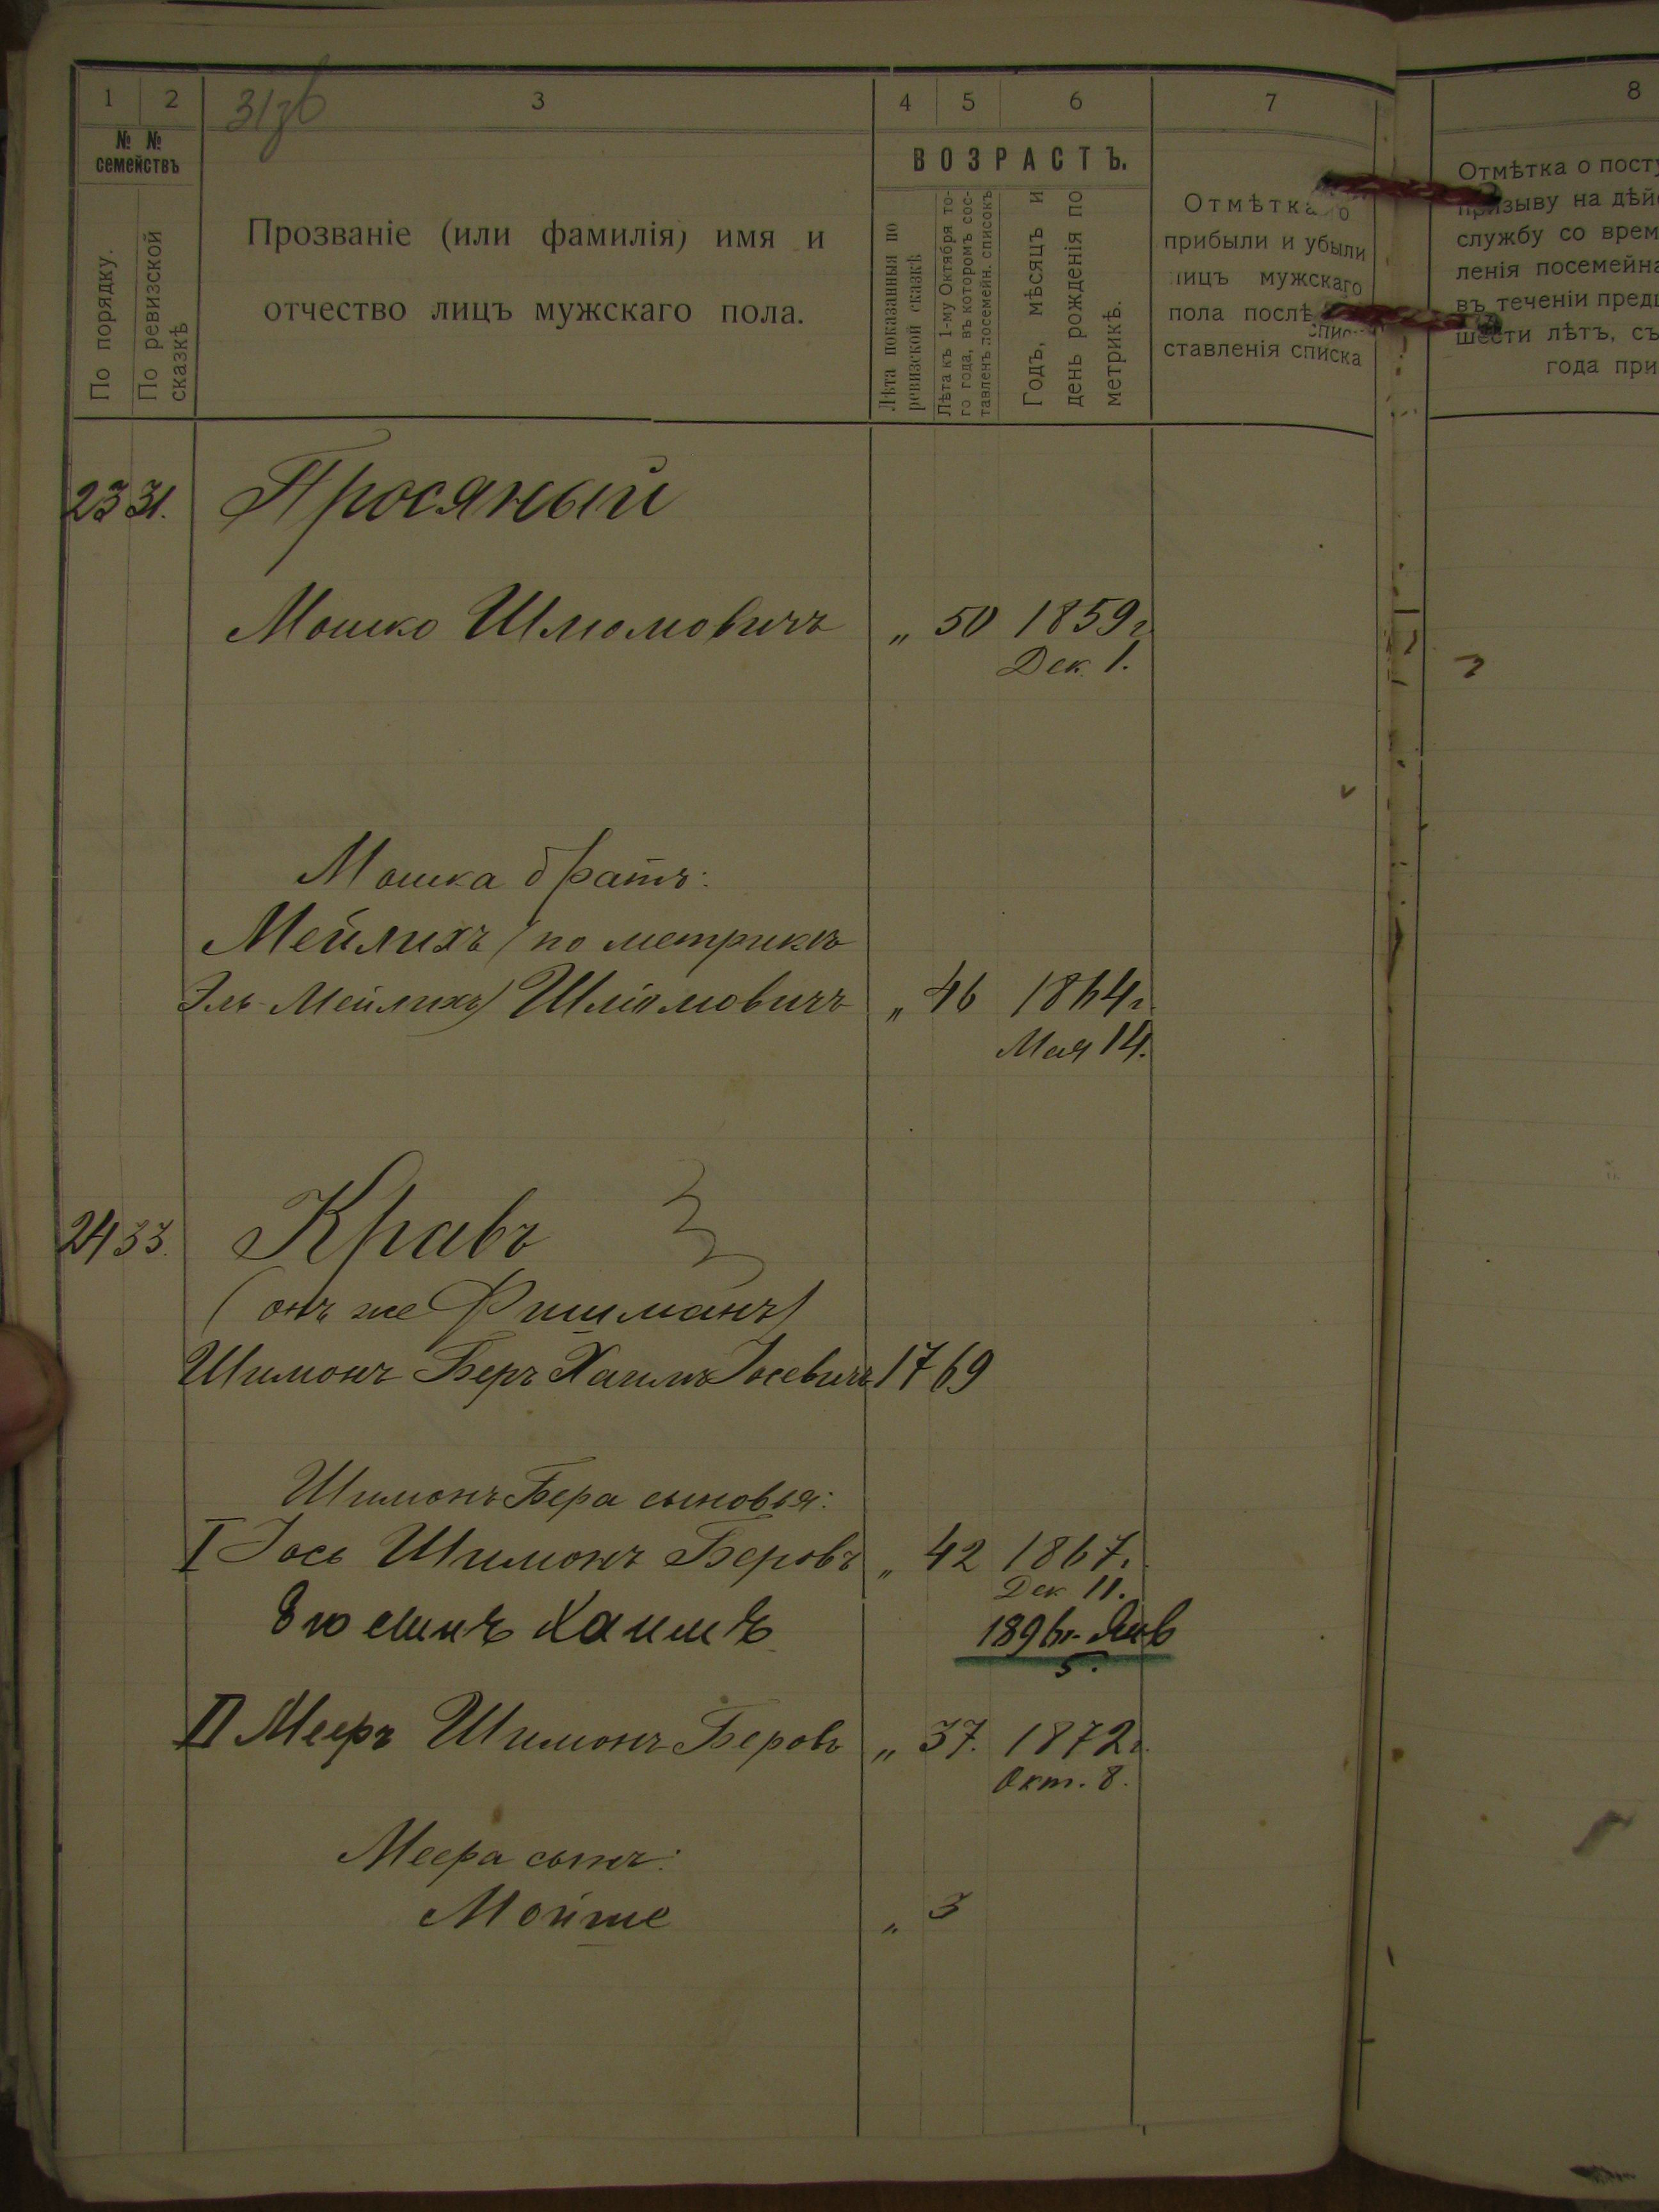 1 2 3 4 5 6 7 8
31
№ № семействъ
По порядку.
По ревизской сказкѣ
Прозваніе (или фамилія) имя и
отчество лицъ мужскаго пола.
ВОЗРАСТЪ.
Лѣта показанныя по
ревизской сказкѣ
Лѣта къ 1-му Октября то-
го года, въ которомъ сос-
тавленъ посемейн. списокъ
Годъ, мѣсяцъ и
день рожденія по
метрикѣ.
Отмѣтка о
прибыли и убыли
лицъ мужскаго
пола послѣ
ставленія списка
Отмѣтка о посту
призыву на дѣй
службу со врем
ленія посемейна
въ теченіи пред
шести лѣтъ, съ
года при
23 31. Просяный
Мошко Шлиомовичъ „ 50 1859 г.
Дек. 1.
Мошка братъ:
Мейлихъ (по метрикѣ
Эль-Мейлихъ) Шліомовичъ „ 46 1864 г.
Мая 14.
24 33. Кравъ
(онъ же Фишманъ)
Шимонъ Беръ Хаимъ Іосевичъ 17 69
Шимонъ Бера сыновья:
I Іось Шимонъ Беровъ „ 42 1867 г.
Дек 11.
Его сынъ Хаимъ 1896 г. Янв
5.
II Мееръ Шимонъ Беровъ „ 37. 1872 г.
Окт. 8.
Меера сынъ:
Мойше „ 3